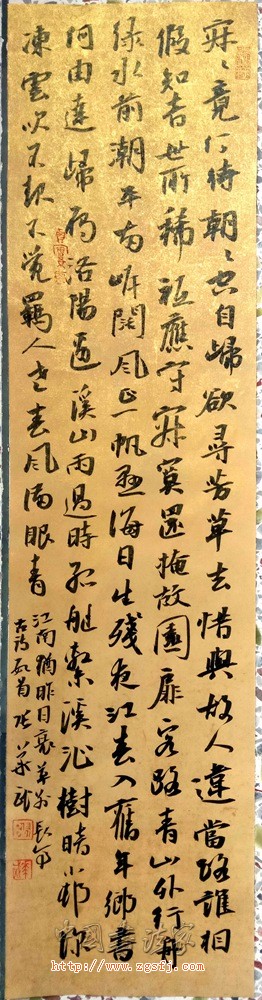 寂々竟何待朝々空自歸欲尋芳草去惜與故人違當路誰相
假知音世所稀祗應守寂寞還掩故園扉客路青山外行舟
綠水前潮平兩岸闊風正一帆懸海日生殘夜江春入舊年鄉書
何由達歸雁洛陽邊溪山雨過時孤艇繫溪沁樹暗小邨
凍雲吹不不覺羈人老春風滿眼青
江南猶昨日
古詩首張
中国书法家
http://www.zgsfj.com/